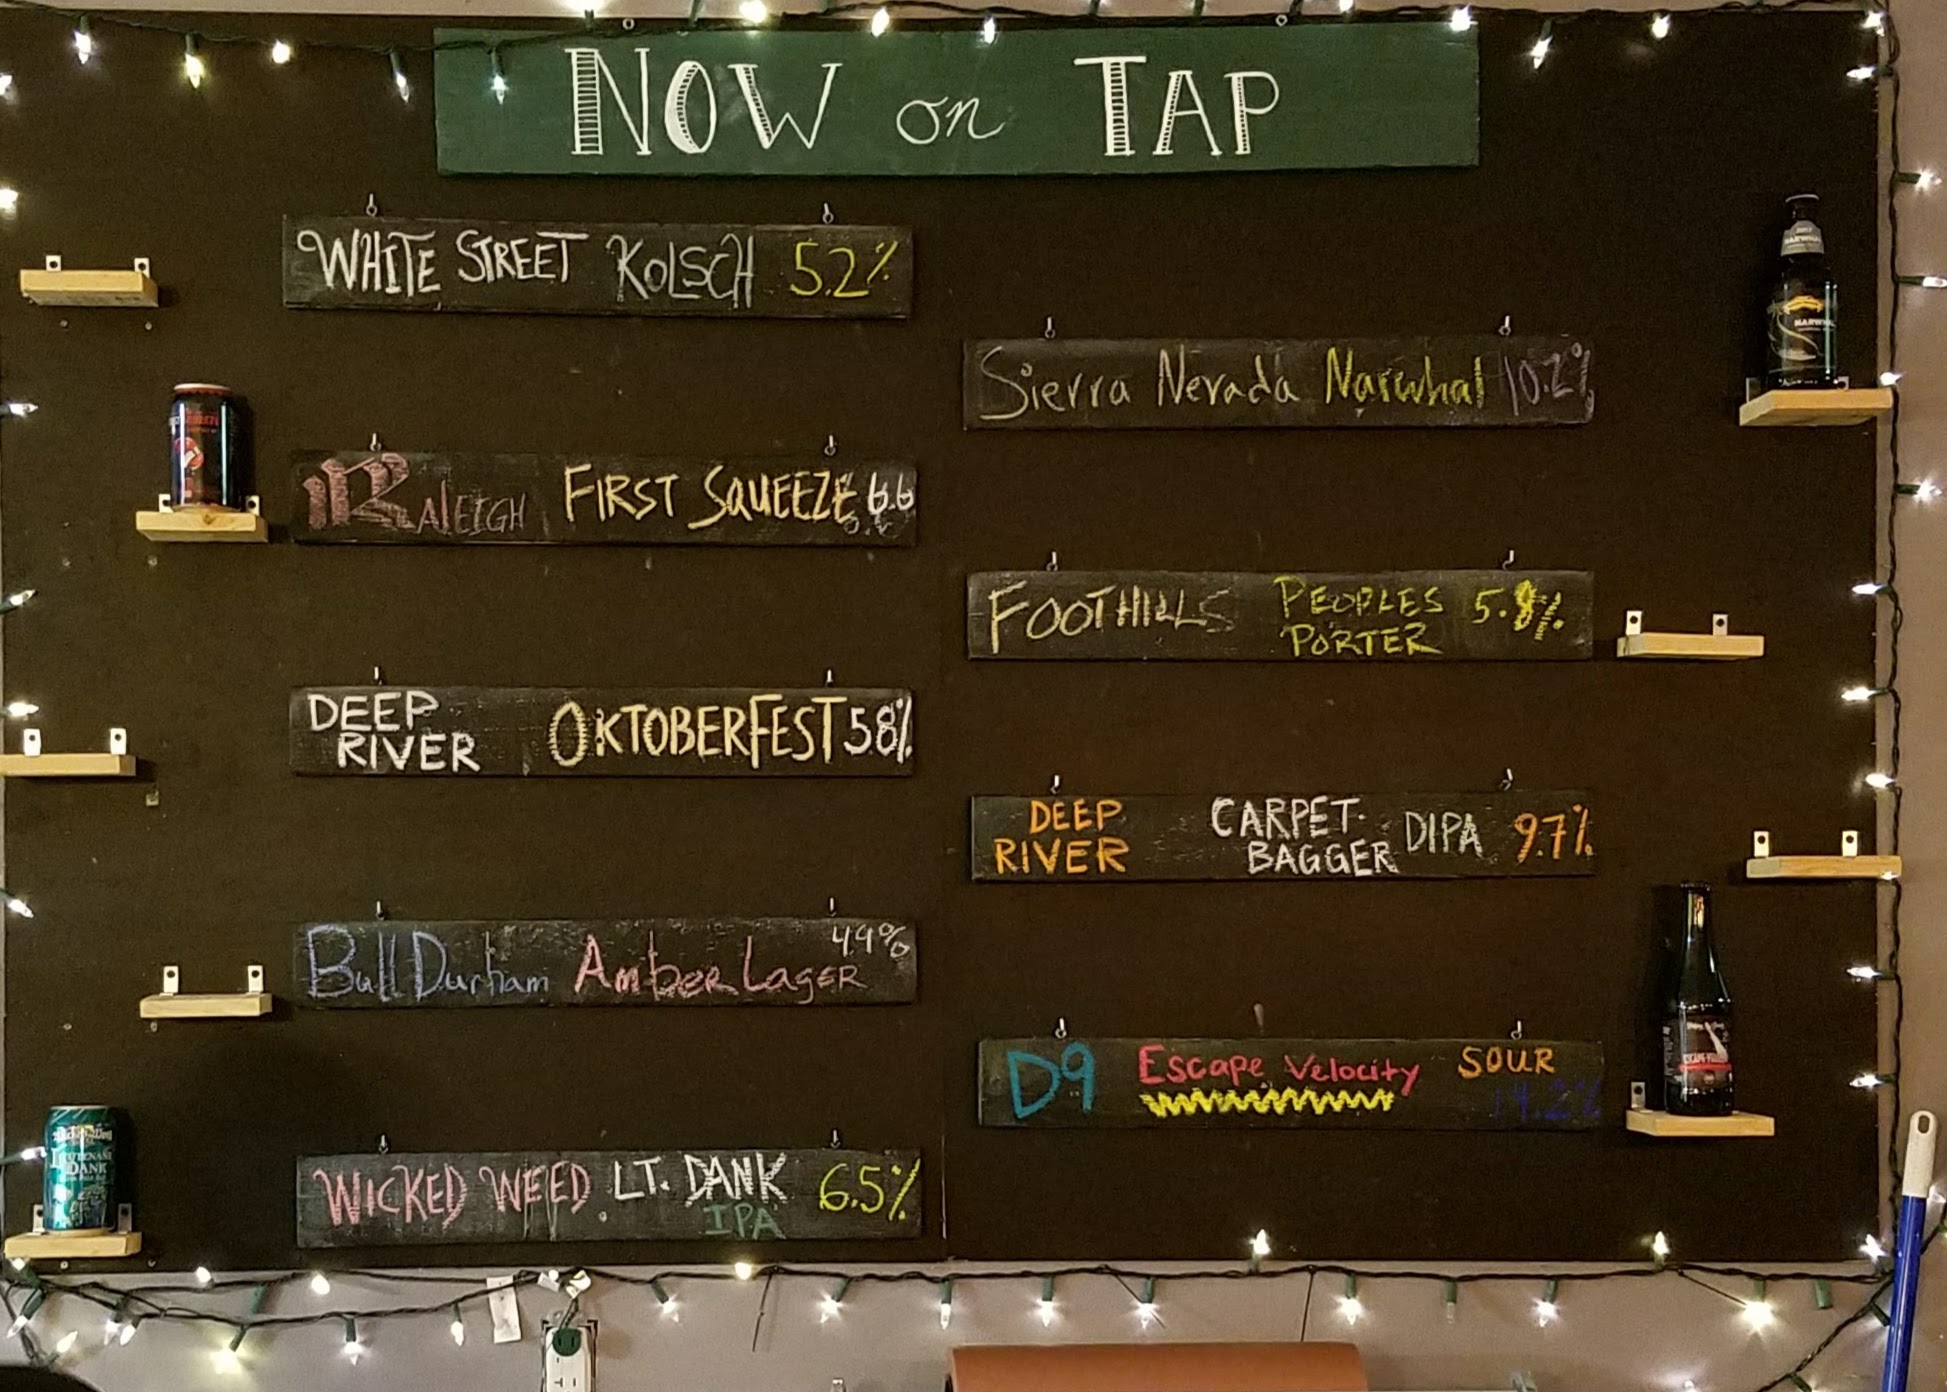 NOW on TAP
WHITE STREET KOLSCH 5.2%
RALEIGH FIRST SQUEEZE 6.6
DEEP
RIVER
OKTOBERFEST 5.8%
Bull Durham Amber Lager 4.9%
WICKED WEED LT. DANK 6.5%
IPA
Sierra Nevada Narwhal 10.2%
FOOTHILLS
PEOPLES
PORTER
5.8%
DEEP
RIVER
CARPET-
BAGGER
DIPA 9.7%
D9 Escape Velocity SOUR
14.2%
NARWHAL
LIEUTENANT
DANK